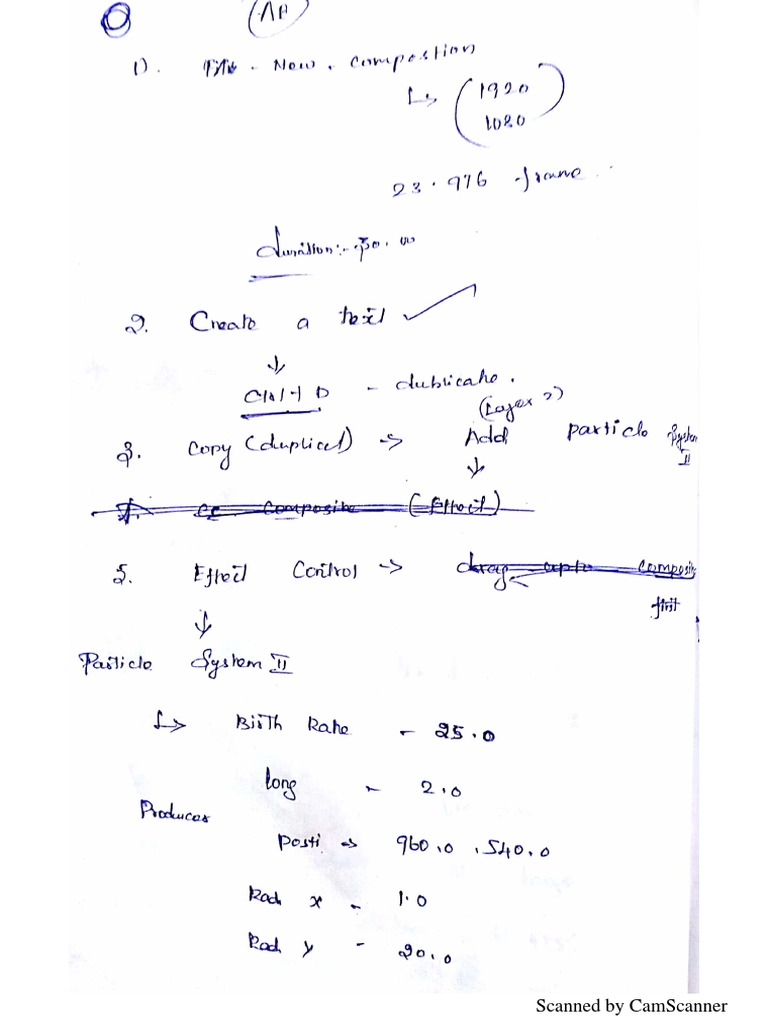 AA
1). Title - New. Compostion
(1920
1080)
23.976 frame
duration:- 30.00
2. Create a text
Ctrl+D - dublicate.
(Layer 2)
3. Copy (duplicat) -> Add Particle System II
4. CC Composite (Effect)
5. Effect Control -> drag upto Composite
first
Particle System II
Birth Rate - 25.0
long - 2.0
Producer
Posti -> 960.0, 540.0
Rad x - 1.0
Rad y - 20.0
Scanned by CamScanner